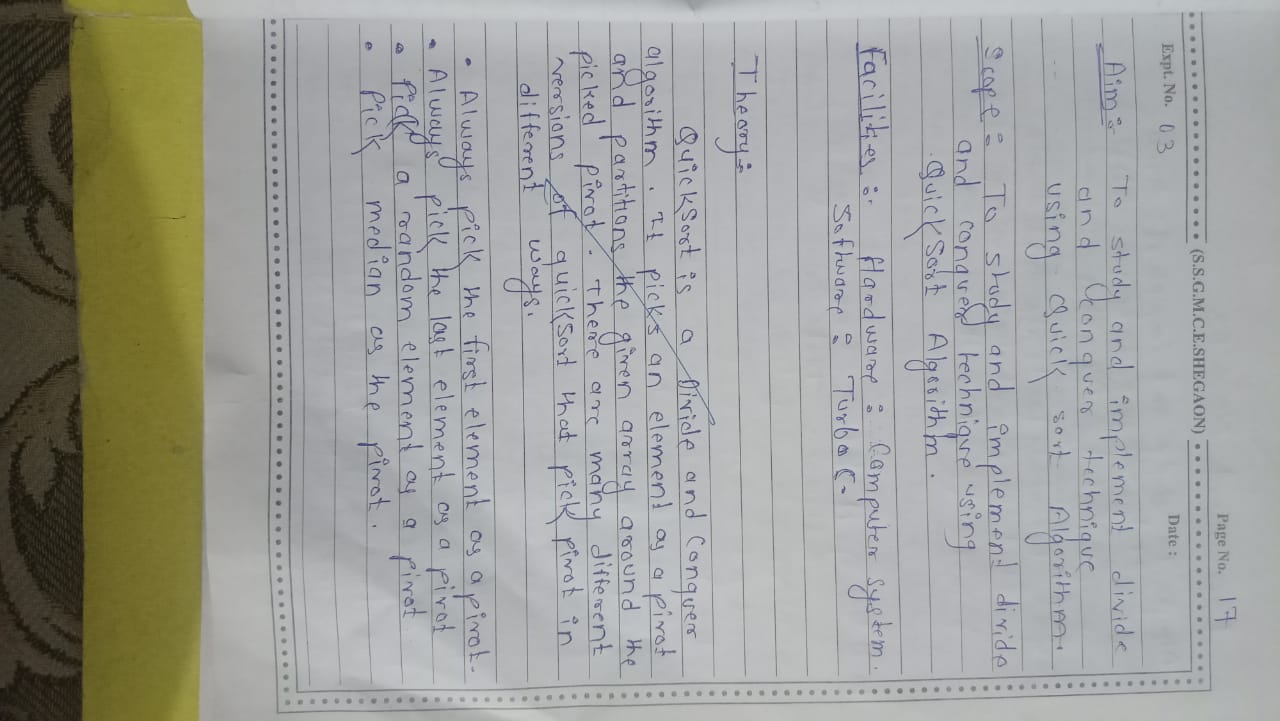 Page No. 17
(S.S.G.M.C.E.SHEGAON)
Expt. No. 03 Date :
Aim : To study and implement divide
and Conquer technique
using Quick sort Algorithm.
Scope : To study and implement divide
and conquer technique using
QuickSort Algorithm.
Facilities : Hardware : Computer system.
Software : Turbo C.
Theory :
QuickSort is a Divide and Conquer
algorithm. It picks an element as a pivot
and partitions the given array around the
picked pivot. There are many different
versions of quickSort that pick pivot in
different ways.
• Always pick the first element as a pivot.
• Always pick the last element as a pivot
• Pick a random element as a pivot
• Pick median as the pivot.